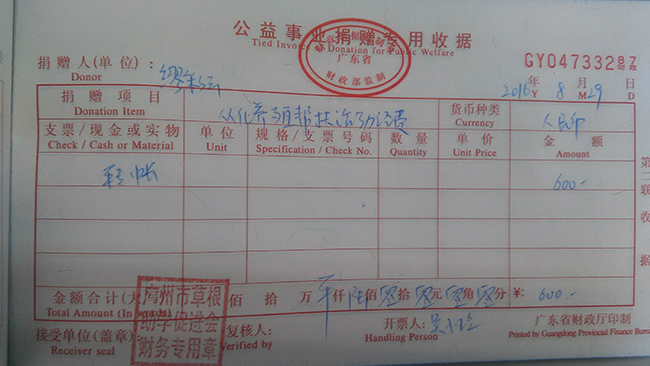 公益事业捐赠专用收据
Tied Invoice Donation for Public Welfare
广东省
财政部监制
GY04733287
财政
捐赠人(单位):
Donor
2016年 8月29日
Y M D
捐赠项目
Donation Item
货币种类
Currency
人民币
支票/现金或实物
Check / Cash or Material
单位
Unit
规格/支票号码
Specification / Check No.
数量
Quantity
单价
Unit Price
金额
Amount
转帐
600.-
第二联 收据
金额合计(大写)
佰 拾 万 仟 陆佰 零拾 零元 零角 零分 ¥: 600.-
Total Amount (In words)
广州市草根
助学促进会
财务专用章
接受单位(盖章):
Receiver seal
复核人:
Verified by
开票人:
Handling Person
广东省财政厅印制
Printed by Guangdong Provincial Finance Bureau